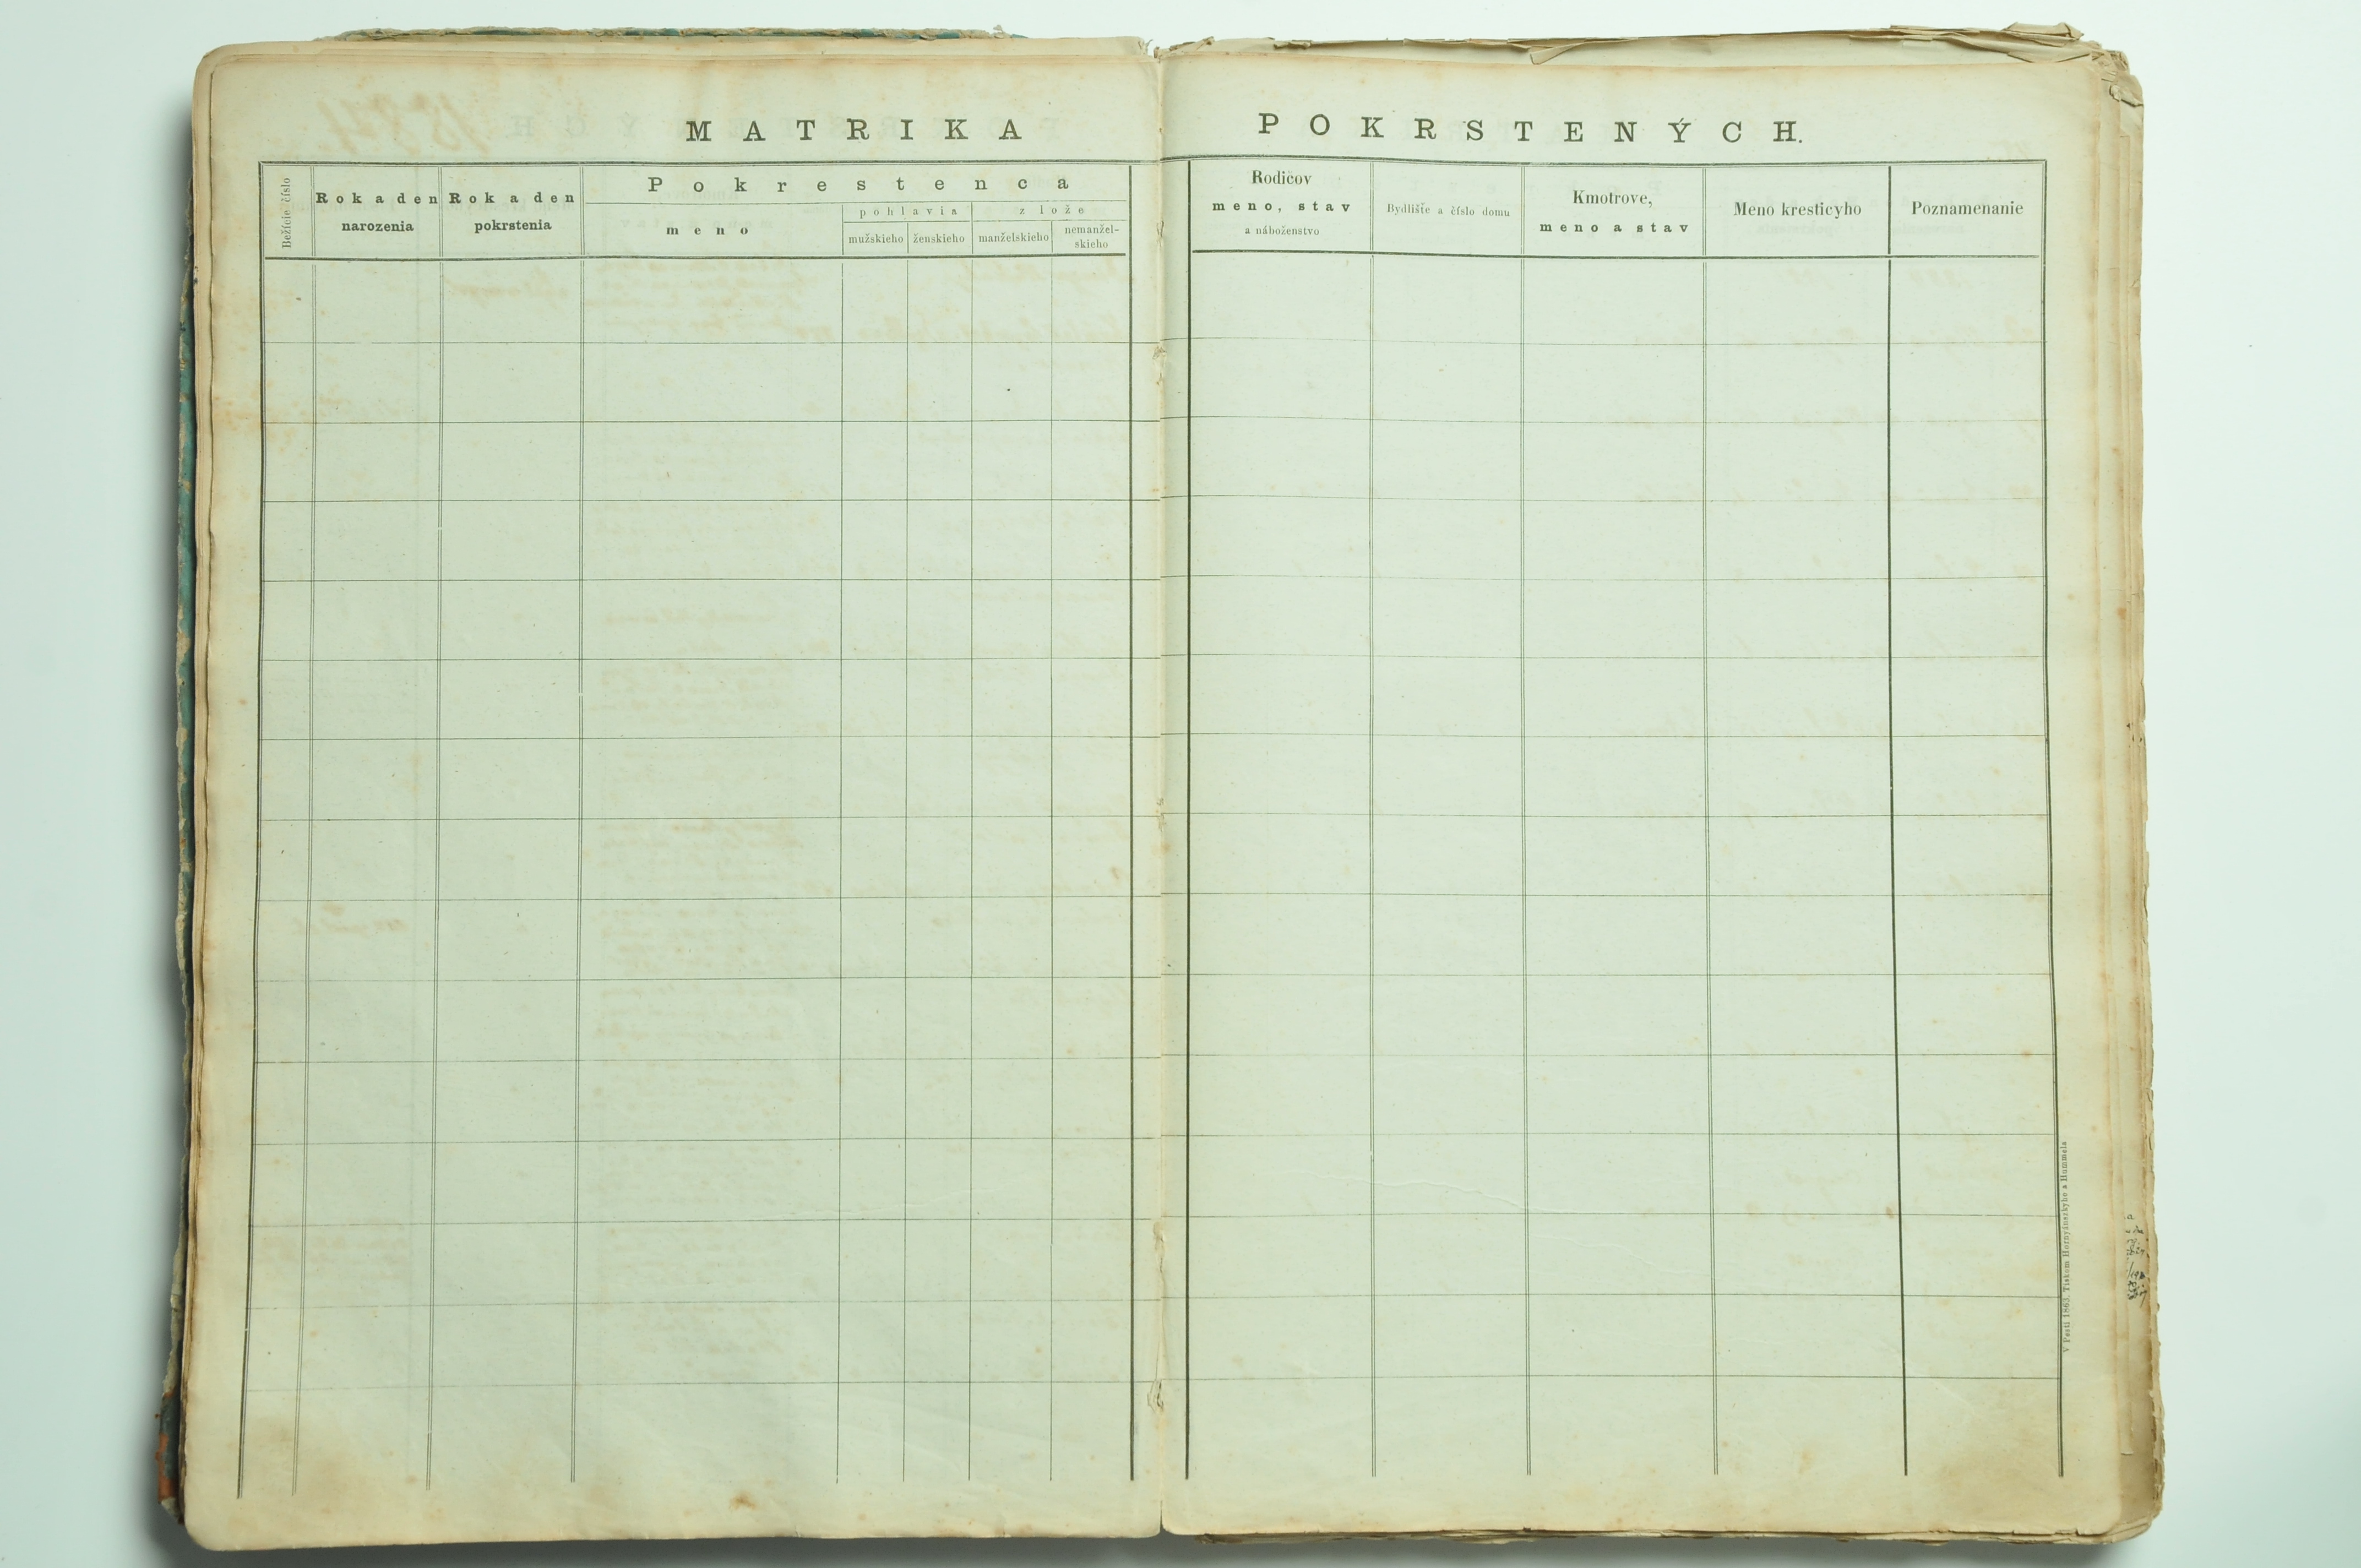 MATRIKA POKRSTENÝCH.
Bežície číslo
Rok a den
narozenia
Rok a den
pokrstenia
Pokrestenca
meno
pohlavia
mužskieho
ženskieho
z lože
manželskieho
nemanžel-
skieho
Rodičov
meno, stav
a náboženstvo
Bydlište a číslo domu
Kmotrove,
meno a stav
Meno kresticyho
Poznamenanie
V Pešti 1863. Tiskom Hornyánszkyho a Hummela